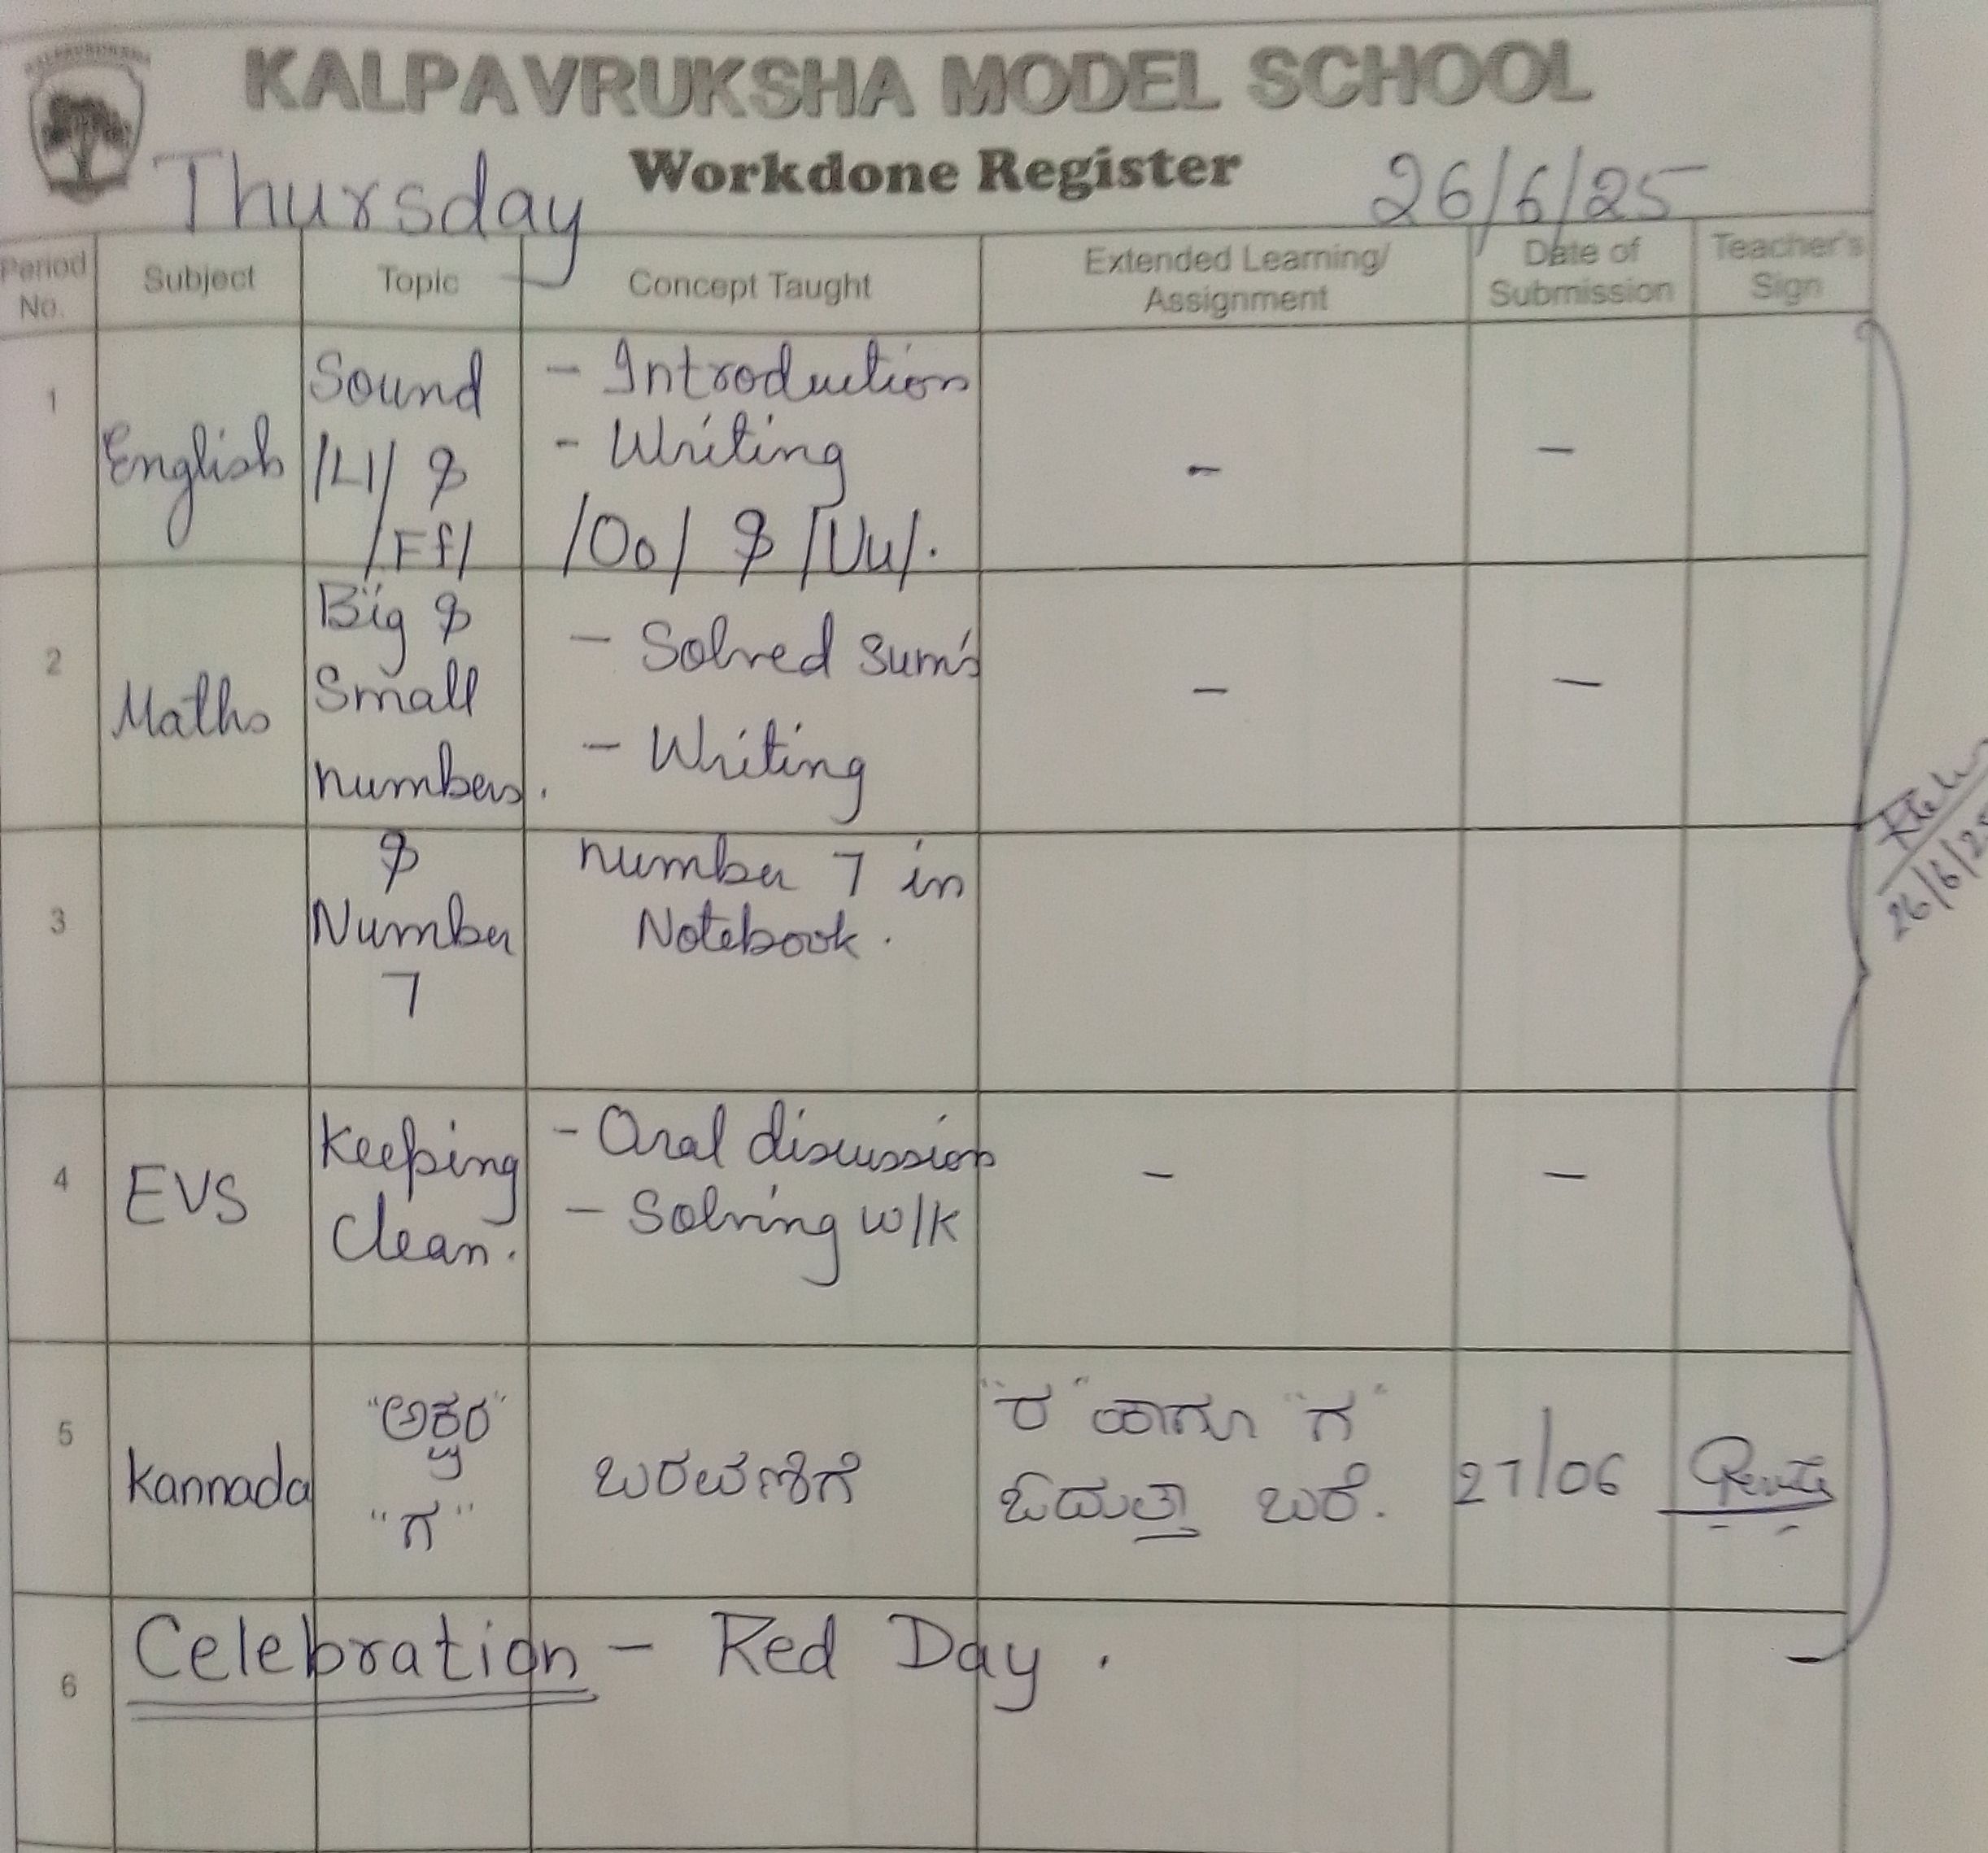 KALPAVRUKSHA
KALPAVRUKSHA MODEL SCHOOL
Workdone Register
Thursday
26/6/25
Period No.
Subject
Topic
Concept Taught
Extended Learning/
Assignment
Date of
Submission
Teacher's
Sign
1
English
Sound
/Ll/ &
/Ff/
- Introduction
- Writing
/Oo/ & /Uu/.
-
-
2
Maths
Big &
Small
numbers.
- Solved sum's
- Writing
-
-
3
&
Number
7
number 7 in
Notebook.
4
EVS
Keeping
Clean.
- Oral discussion
- Solving w/k
-
-
5
Kannada
"ಅಕ್ಷರ"
"ಗ"
ಬರವಣಿಗೆ
"ರ" ಹಾಗೂ "ಗ"
ಓದುತ್ತಾ ಬರೆ.
27/06
26/6/25
6
Celebration - Red Day.